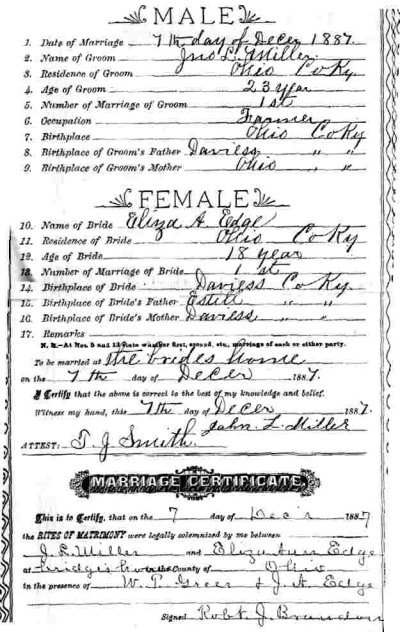 MALE
1. Date of Marriage 7th day of Decer 1887.
2. Name of Groom Jno L. Miller.
3. Residence of Groom Ohio Co Ky.
4. Age of Groom 23 year
5. Number of Marriage of Groom 1st
6. Occupation Farmer
7. Birthplace Ohio Co Ky
8. Birthplace of Groom's Father Daviess " "
9. Birthplace of Groom's Mother Ohio " "
FEMALE
10. Name of Bride Eliza A. Edge
11. Residence of Bride Ohio Co Ky
12. Age of Bride 18 year
13. Number of Marriage of Bride 1 st
14. Birthplace of Bride Daviess Co Ky.
15. Birthplace of Bride's Father Estill " "
16. Birthplace of Bride's Mother Daviess " "
17. Remarks
N. B.—At Nos. 5 and 13 state whether first, second, etc., marriage of each or either party.
To be married at the brides home
on the 7th day of Decer 1887.
I Certify that the above is correct to the best of my knowledge and belief.
Witness my hand, this 7th day of Decer 1887.
John L. Miller
ATTEST: T J Smith.
MARRIAGE CERTIFICATE.
This is to Certify, that on the 7 day of Dec'r 1887
the RITES OF MATRIMONY were legally solemnized by me between
J. L. Miller and Eliza Ann Edge
at in the County of Ohio
in the presence of W. P. Greer & J. A. Edge
Signed Robt. J. Brandon